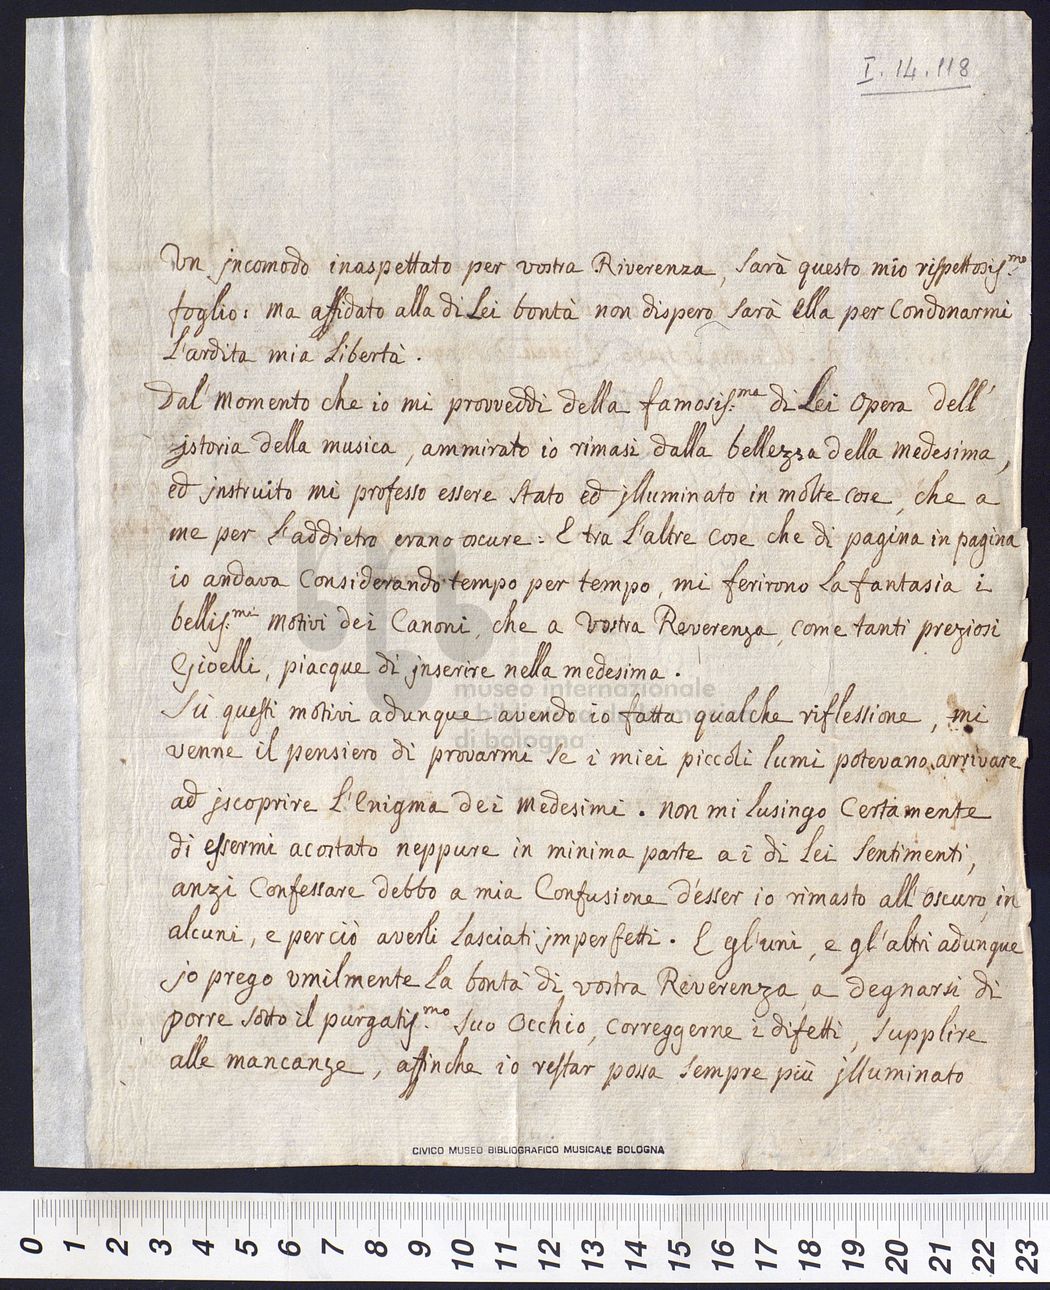 I. 14. 118
Un jncomodo inaspettato per vostra Riverenza, sarà questo mio rispettosis.mo
foglio: ma affidato alla di Lei bontà non dispero sarà ella per condonarmi
l'ardita mia libertà.
Dal' momento che io mi provveddi della famosis.ma di Lei opera dell'
jstoria della musica, ammirato io rimasi dalla bellezza della medesima,
ed jnstruito mi professo essere stato ed jlluminato in molte cose, che a
me per l'addietro erano oscure: E tra l'altre cose che di pagina in pagina
io andava considerando tempo per tempo, mi ferirono la fantasia i
bellis.mi motivi dei Canoni, che a vostra Reverenza, come tanti preziosi
Gioelli, piacque di jnserire nella medesima.
Sù questi motivi adunque avendo io fatta qualche riflessione, mi
venne il pensiero di provarmi se i miei piccoli lumi potevano arrivare
ad jscoprire l'Enigma dei medesimi. non mi lusingo certamente
di essermi acostato neppure in minima parte a i di Lei sentimenti,
anzi confessare debbo a mia confusione d'esser io rimasto all'oscuro in
alcuni, e perciò averli lasciati jmperfetti. E gl'uni, e gl'altri adunque
jo prego umilmente la bontà di vostra Reverenza a degnarsi di
porre sotto il purgatis.mo suo occhio, correggerne i difetti, supplire
alle mancanze, affinche io restar possa sempre più jlluminato
museo internazionale
e biblioteca della musica
di bologna
CIVICO MUSEO BIBLIOGRAFICO MUSICALE BOLOGNA
0 1 2 3 4 5 6 7 8 9 10 11 12 13 14 15 16 17 18 19 20 21 22 23